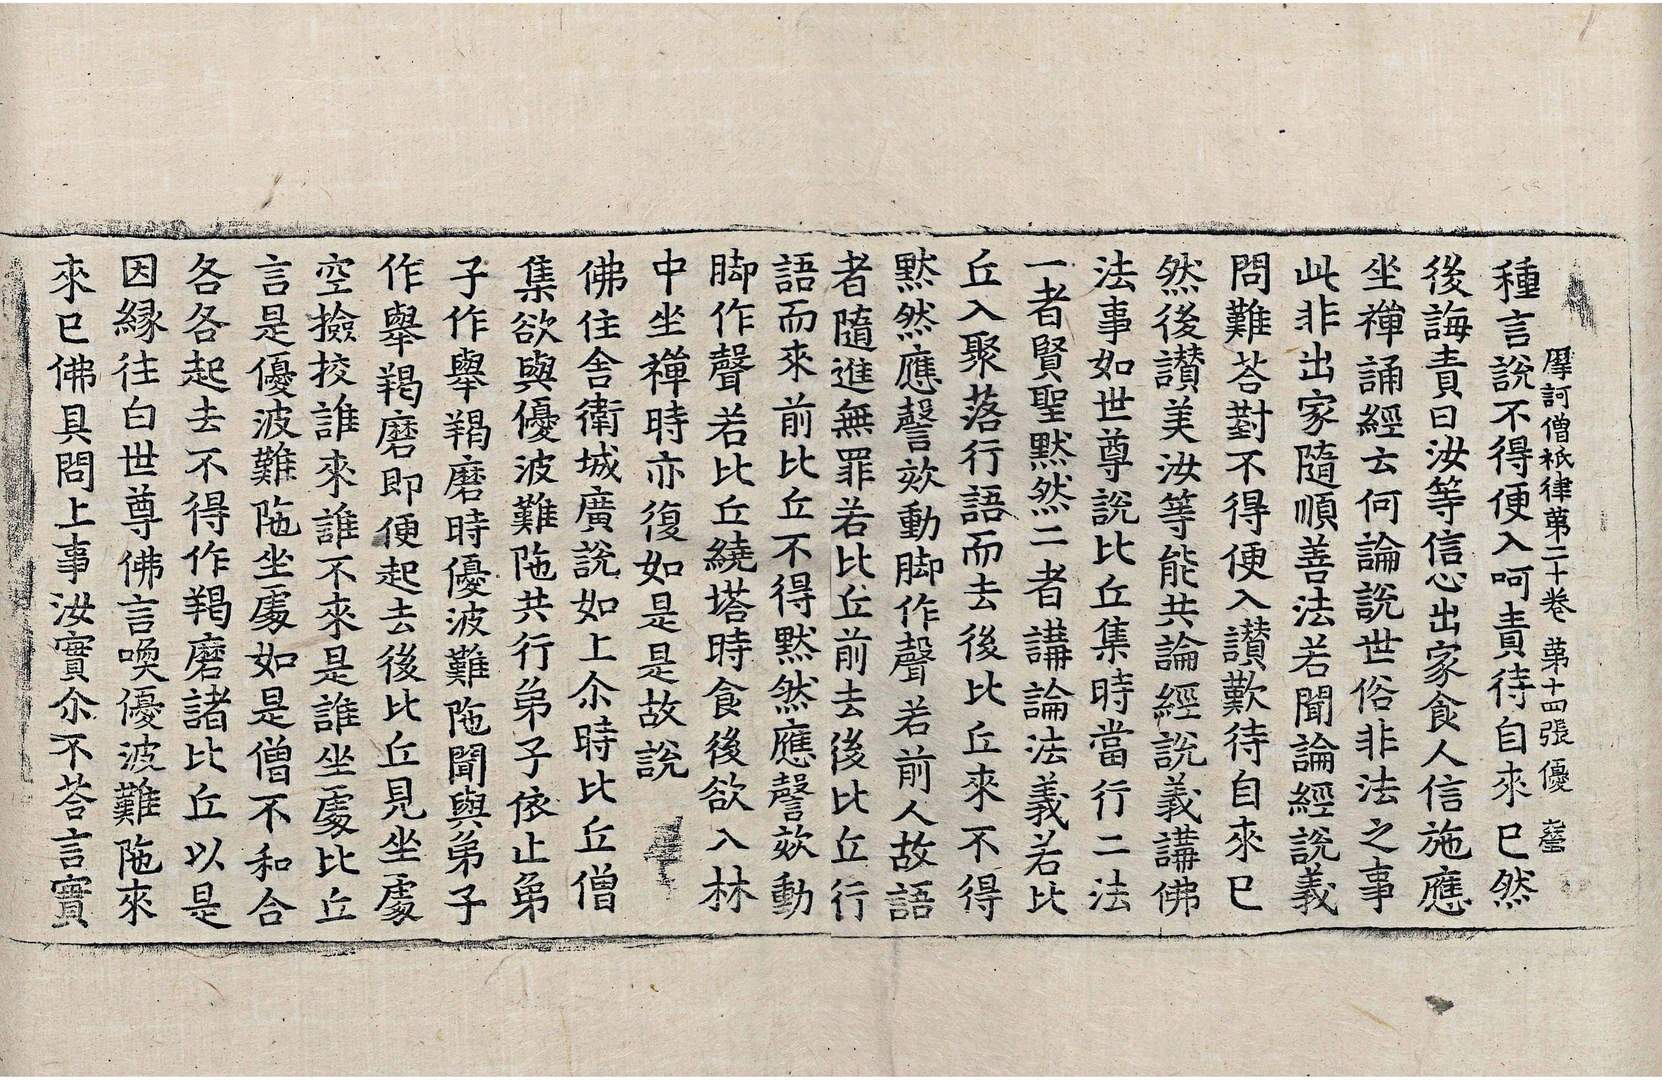 摩訶僧祇律苐二十卷 苐十四張 優
種言說不得便入呵責待自來已然
後誨責曰汝等信心出家食人信施應
坐禪誦經云何論說世俗非法之事
此非出家隨順善法若聞論經說義
問難荅對不得便入讃歎待自來已
然後讃美汝等能共論經說義講佛
法事如世尊說比丘集時當行二法
一者賢聖默然二者講論法義若比
丘入聚落行語而去後比丘來不得
默然應謦欬動脚作聲若前人故語
者隨進無罪若比丘前去後比丘行
語而來前比丘不得默然應謦欬動
脚作聲若比丘繞塔時食後欲入林
中坐禪時亦復如是是故說
佛住舍衛城廣說如上尒時比丘僧
集欲與優波難陁共行弟子依止弟
子作舉羯磨時優波難陁聞與弟子
作舉羯磨即便起去後比丘見坐處
空撿挍誰來誰不來是誰坐處比丘
言是優波難陁坐處如是僧不和合
各各起去不得作羯磨諸比丘以是
因縁往白世尊佛言喚優波難陁來
來已佛具問上事汝實尒不荅言實